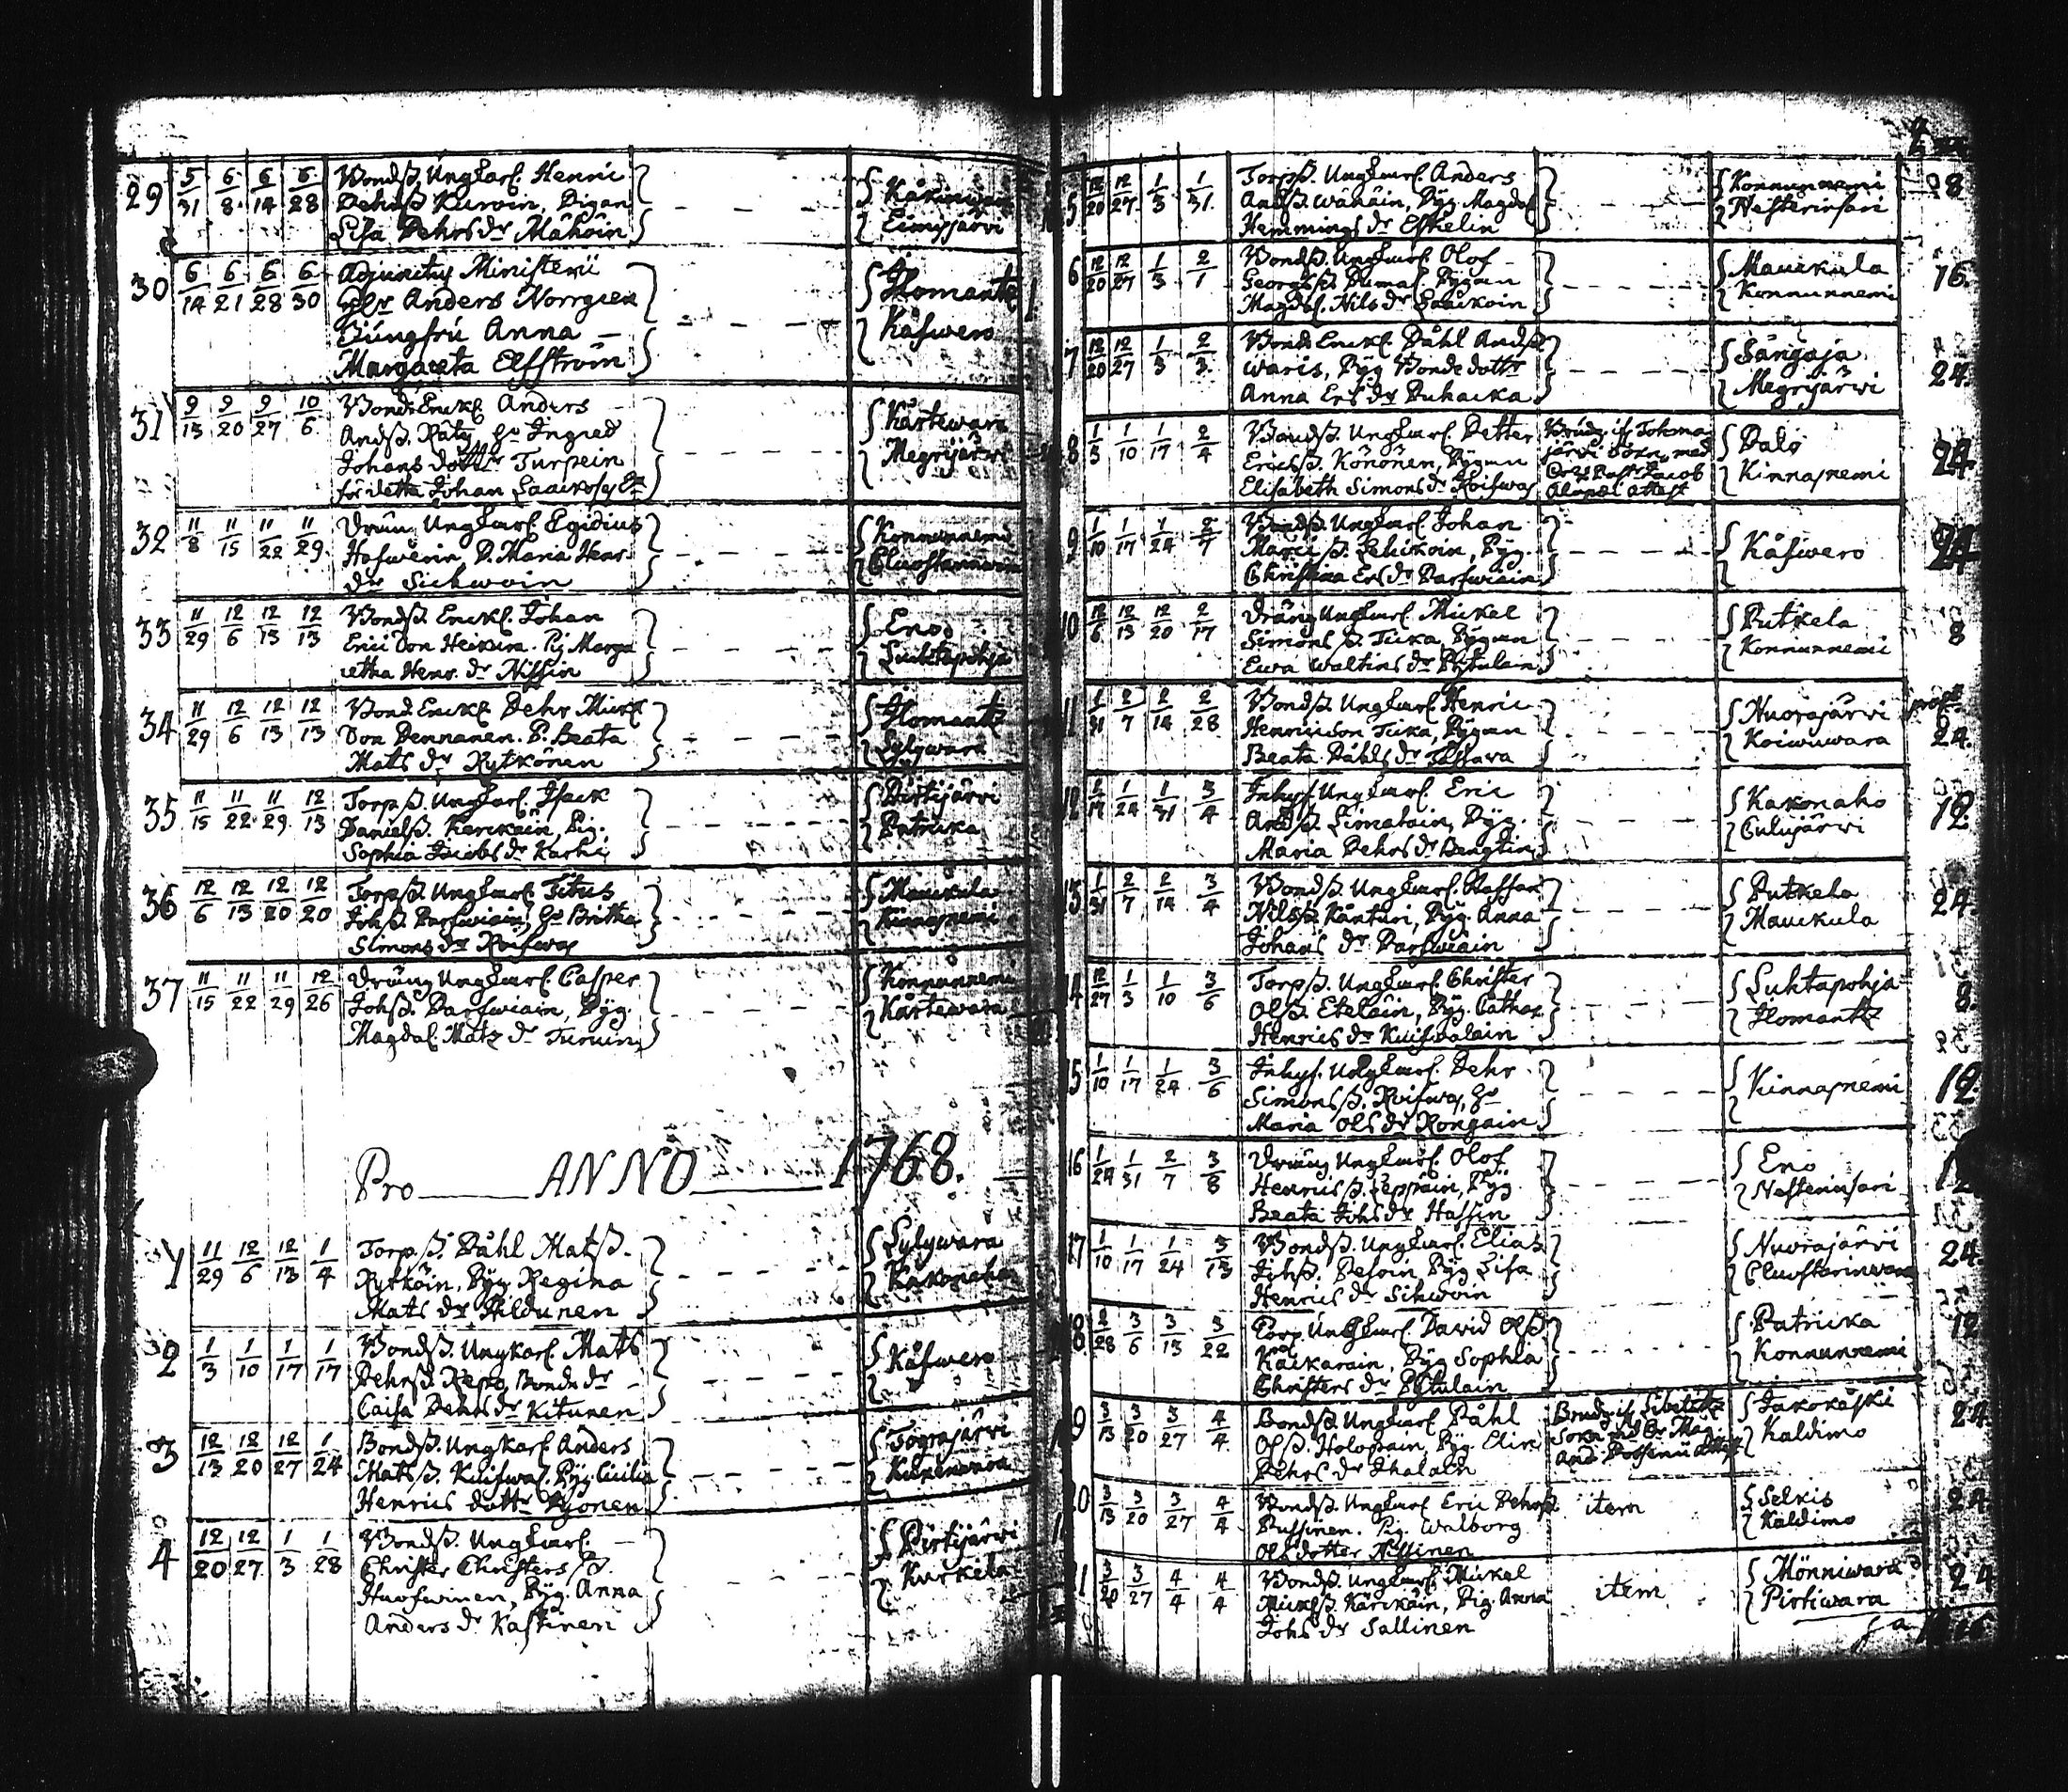 29 5/31 6/8 6/14 6/28 Bondß. Ungkarl. Henric
Pehrß Kurvin, Pigan
Lisa Pehrs dr Mähöin
Eimisjärvi
30 6/14 6/21 6/28 6/30 Adjunctus Ministerii
Hr Anders Norrgren
Jungfru Anna –
Margareta Elfström
Ilomantz
Kåfwero
31 9/13 9/20 9/27 10/6 Bond. Enckl. Anders
Andß. Räty, H. Ingred
Johans dotter Turpein
för detta Johan
Kärtewara
Megrijärvi
32 11/8 11/15 11/22 11/29 Dräng Ungkarl. Egidius
P. Maria Henr.
dr Sickwoin
Konnunnemi
33 11/29 12/6 12/13 12/13 Bondß. Enckl. Johan
Erici Son Heickura. Pig Marga
retha Henr. dr Nissin
Eno
Luchtapohja
34 11/29 12/6 12/13 12/13 Bond Enckl Pehr Mick
Son Pennanen. P. Beata
Mats dr Rytkönen
Ilomantz
Sylywara
35 11/15 11/22 11/29 12/13 Torpß. Ungkarl. Isack
Danielß. Karckain, Pig.
Sophia Jacobs dr Karhi
Pirtijärvi
Patricka
36 12/6 12/13 12/20 12/20 Torpß. Ungkarl. Titus
Johß. Parfwiain, H. Britha
Simons dr Roifwas
Mauckula
Kinnasnemi
37 11/15 11/22 11/29 12/26 Dräng Ungkarl. Casper
Johß. Parfwiain, Pyg.
Magdal. Matz dr Turuin
Konnunnemi
Kärtewara
Pro ANNO 1768.
1 11/29 12/6 12/13 1/4 Torpß. Påhl Matß.
Rytköin, Pyg. Regina
Mats dr Hildunen
Sylywara
Kakonaho
2 1/3 1/10 1/17 1/17 Bondß. Ungkarl Mats
Pehrß. Repo, Bonde dr
Caisa Pehrs dr Kitunen
Kåfwero
3 12/13 12/20 12/27 1/24 Bondß. Ungkarl Anders
Matsß. Kuifwal. Pyg. Cicilia
Henrics dottr Ryönen
Tograjärvi
4 12/20 12/27 1/3 1/28 Bondß. Ungkarl. –
Christer Christers ß.
Huofwinen, Pyg. Anna
Anders dr Kastinen
Pirtijärvi
Kurkela
5 12/20 12/27 1/3 1/31 Torpß. Ungkarl. Anders
Andß. Wähäin, Pyg Magdal
Hemmings dr Eskelin
Konnunnemi
Nesterinsari
28
6 12/20 12/27 1/3 2/1 Bondß. Ungkarl Olof
Georgsß. Pumal. Pygan
Magdal. Nils dr Laackoin
Mauckula
Konnunnemi
16.
7 12/20 12/27 1/3 2/3 Bonde Enckl. Påhl Andß
Waris, Pyg Bonde dottr
Anna Ers dr Puhacka
Sångaja
Megrijärwi
24.
8 1/3 1/10 1/17 2/4 Bondß. Ungkarl. Petter
Ericsß. Könönen, Pygan
Elisabeth Simons dr Roifwas
Brudg. if. Tohma
järvi Sokn, med
attest
Palo
Kinnasnemi
24.
9 1/10 1/17 1/24 2/7 Bondß. Ungkarl Johan
Marci ß. Lehikoin, Pyg.
Christina Ers dr Parfwiain
Kåfwero
24
10 12/6 12/13 12/20 2/17 Dräng Ungkarl Mickel
Simons ß. Ticka, Pygan
Ewa Waltins dr
Putkela
Konnunnemi
8
11 1/31 2/7 2/14 2/28 Bondß. Ungkarl Henric
Henricsson Ticka, Pygan
Beata Påhls dr Tassara
Nuorajärvi
Koiwuwara
24.
12 1/17 1/24 1/31 3/4 Inhys. Ungkarl Eric
Andß. Limatain, Pyg.
Maria Pehrs dr Bengtin
Kakonaho
Culujärwi
12.
13 1/31 2/7 2/14 3/4 Bondß. Ungkarl Staffan
Nilsß. Känturi, Pyg. Anna
Johans dr Parfwiain
Putkela
Mauckula
24.
14 12/27 1/3 1/10 3/6 Torpß. Ungkarl Christer
Olß. Etelain, Pyg. Cathar
Henrics dr Kuifwalain
Luktapohja
Ilomantz
8.
15 1/10 1/17 1/24 3/6 Inhys. Ungkarl. Pehr
Simonsß. Roifwas, H.
Maria Ols dr Rongain
Kinnasnemi
12.
16 1/24 1/31 2/7 3/8 Dräng Ungkarl. Olof
Henricsß. Leppäin, Pyg
Beata Johs dr Hassin
Eno
Nesterinsari
17 1/10 1/17 1/24 3/13 Bondß. Ungkarl. Elias
Johß. Pesoin, Pyg Lisa
Henrics dr Sikwoin
Nuorajärvi
24.
18 2/28 3/6 3/13 3/22 Torp. Ungkarl David Olß.
Kackarain, Pyg Sophia
Christers dr
Patricka
Konnunnemi
12
19 3/13 3/20 3/27 4/4 Bondß. Ungkarl Påhl
Olß. Holopain, Pyg. Elin
Pehrs dr Ihalain
Brudg. if Libelitz
Sokn
Jakokåski
Kaldimo
24.
20 3/13 3/20 3/27 4/4 Bondß. Ungkarl Eric Pehrß
Pussinen. Pig. Walborg
Ols dotter Nissinen
item
Selkis
Kaldimo
24.
21 3/20 3/27 4/4 4/4 Bondß. Ungkarl. Mickel
Mickelß. Karckäin, Pig. Anna
Johs dr Sallinen
item
Mönniwara
Pirtiwara
24